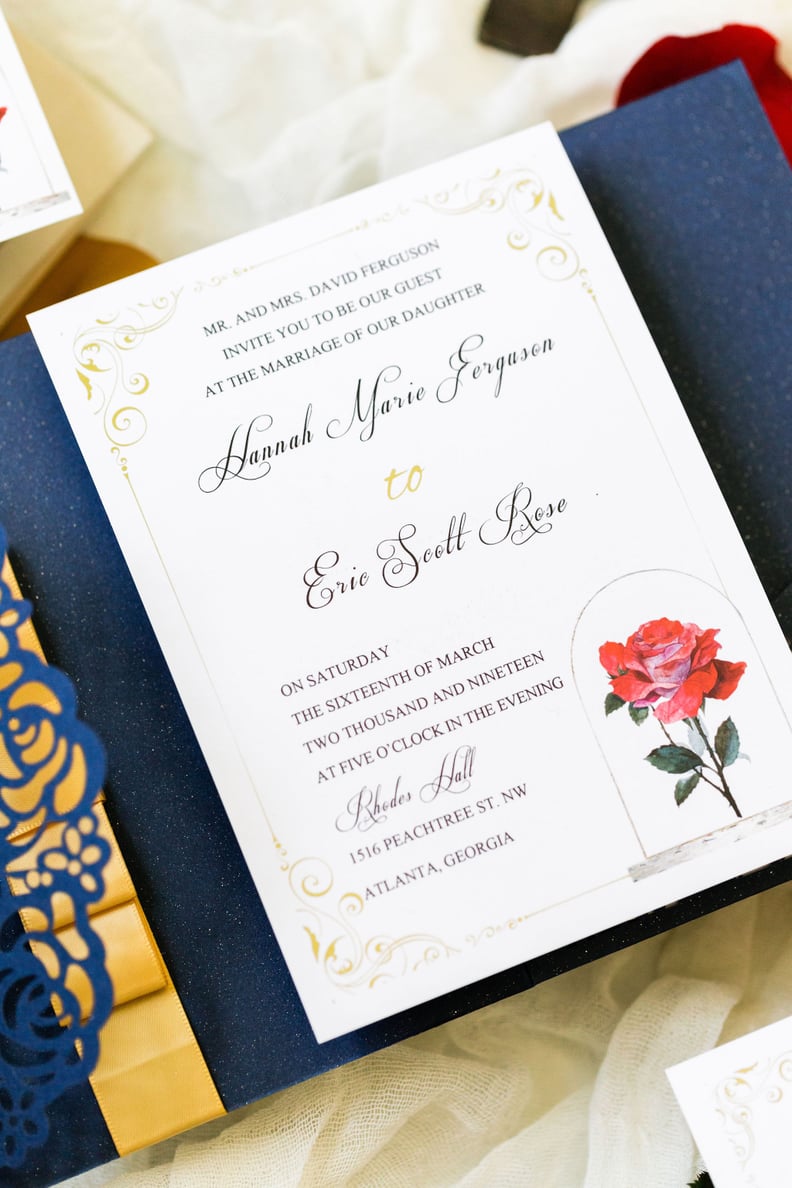 MR. AND MRS. DAVID FERGUSON
INVITE YOU TO BE OUR GUEST
AT THE MARRIAGE OF OUR DAUGHTER
Hannah Marie Ferguson
to
Eric Scott Rose
ON SATURDAY
THE SIXTEENTH OF MARCH
TWO THOUSAND AND NINETEEN
AT FIVE O'CLOCK IN THE EVENING
Rhodes Hall
1516 PEACHTREE ST. NW
ATLANTA, GEORGIA